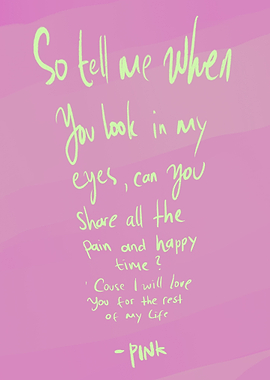 So tell me when
You look in my
eyes, can you
share all the
pain and happy
time?
'Cause I will love
you for the rest
of my life
- PINK